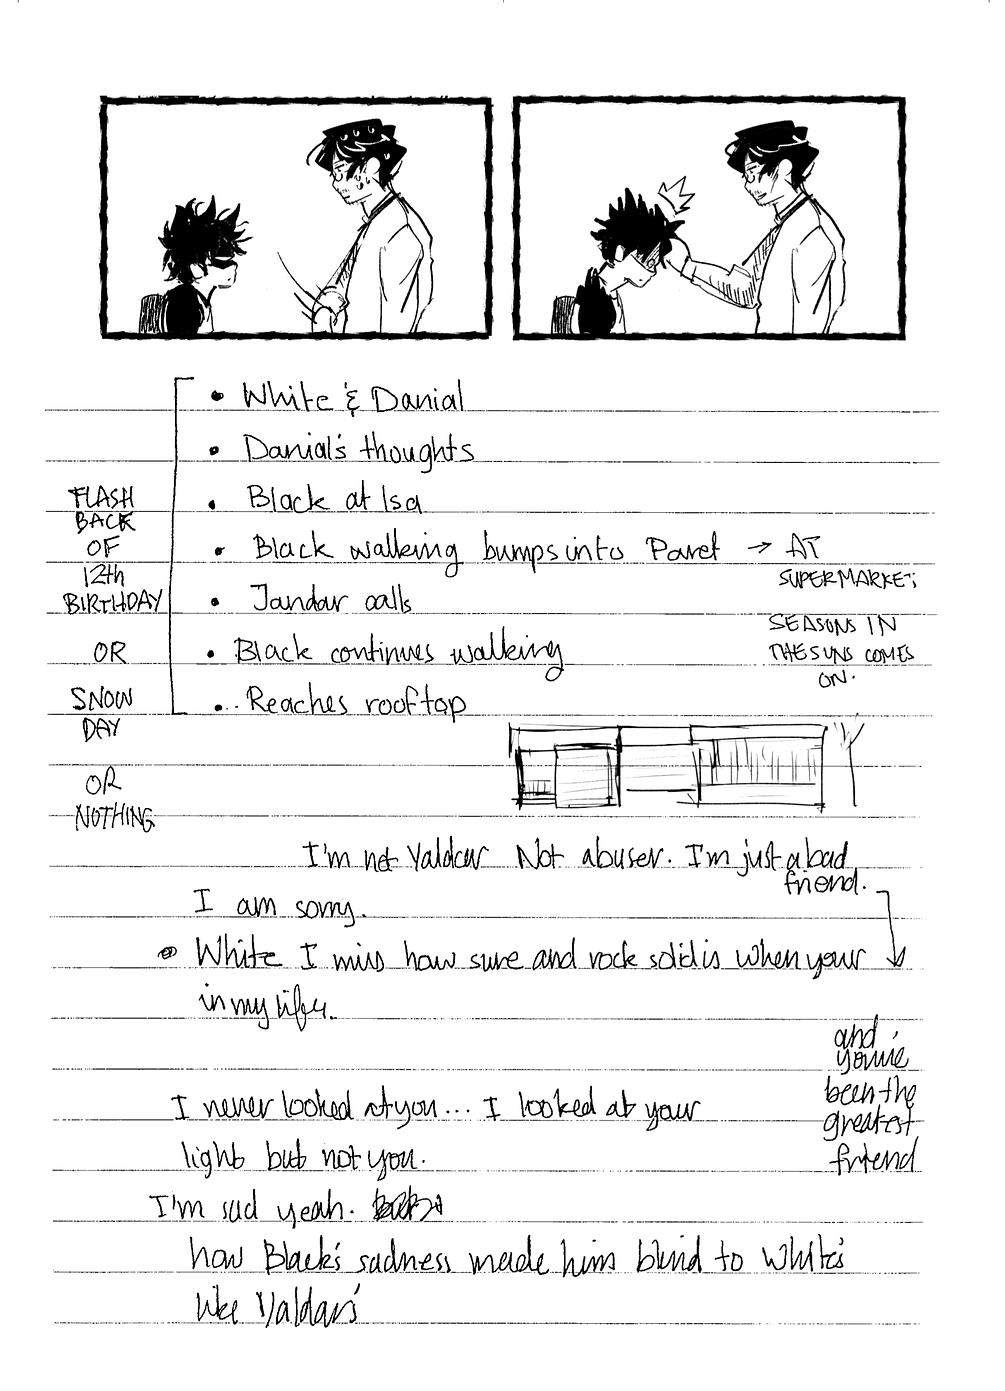 • White & Danial
• Danial's thoughts
FLASH
BACK
OF
12th
BIRTHDAY
OR
SNOW
DAY
OR
NOTHING
• Black at Isa
• Black walking bumps into Pavet → AT
SUPERMARKET;
• Jandar calls
SEASONS IN
THE SUNS COMES
ON.
• Black continues walking
•.. Reaches rooftop
I'm not Yaldar Not abuser. I'm just a bad
friend.
I am sorry.
• White I miss how sure and rock solid is when your
in my life.
and
you've
been the
greatest
friend
I never looked at you... I looked at your
light but not you.
I'm sad yeah.
how Black's sadness made him blind to White's
like Yaldar's